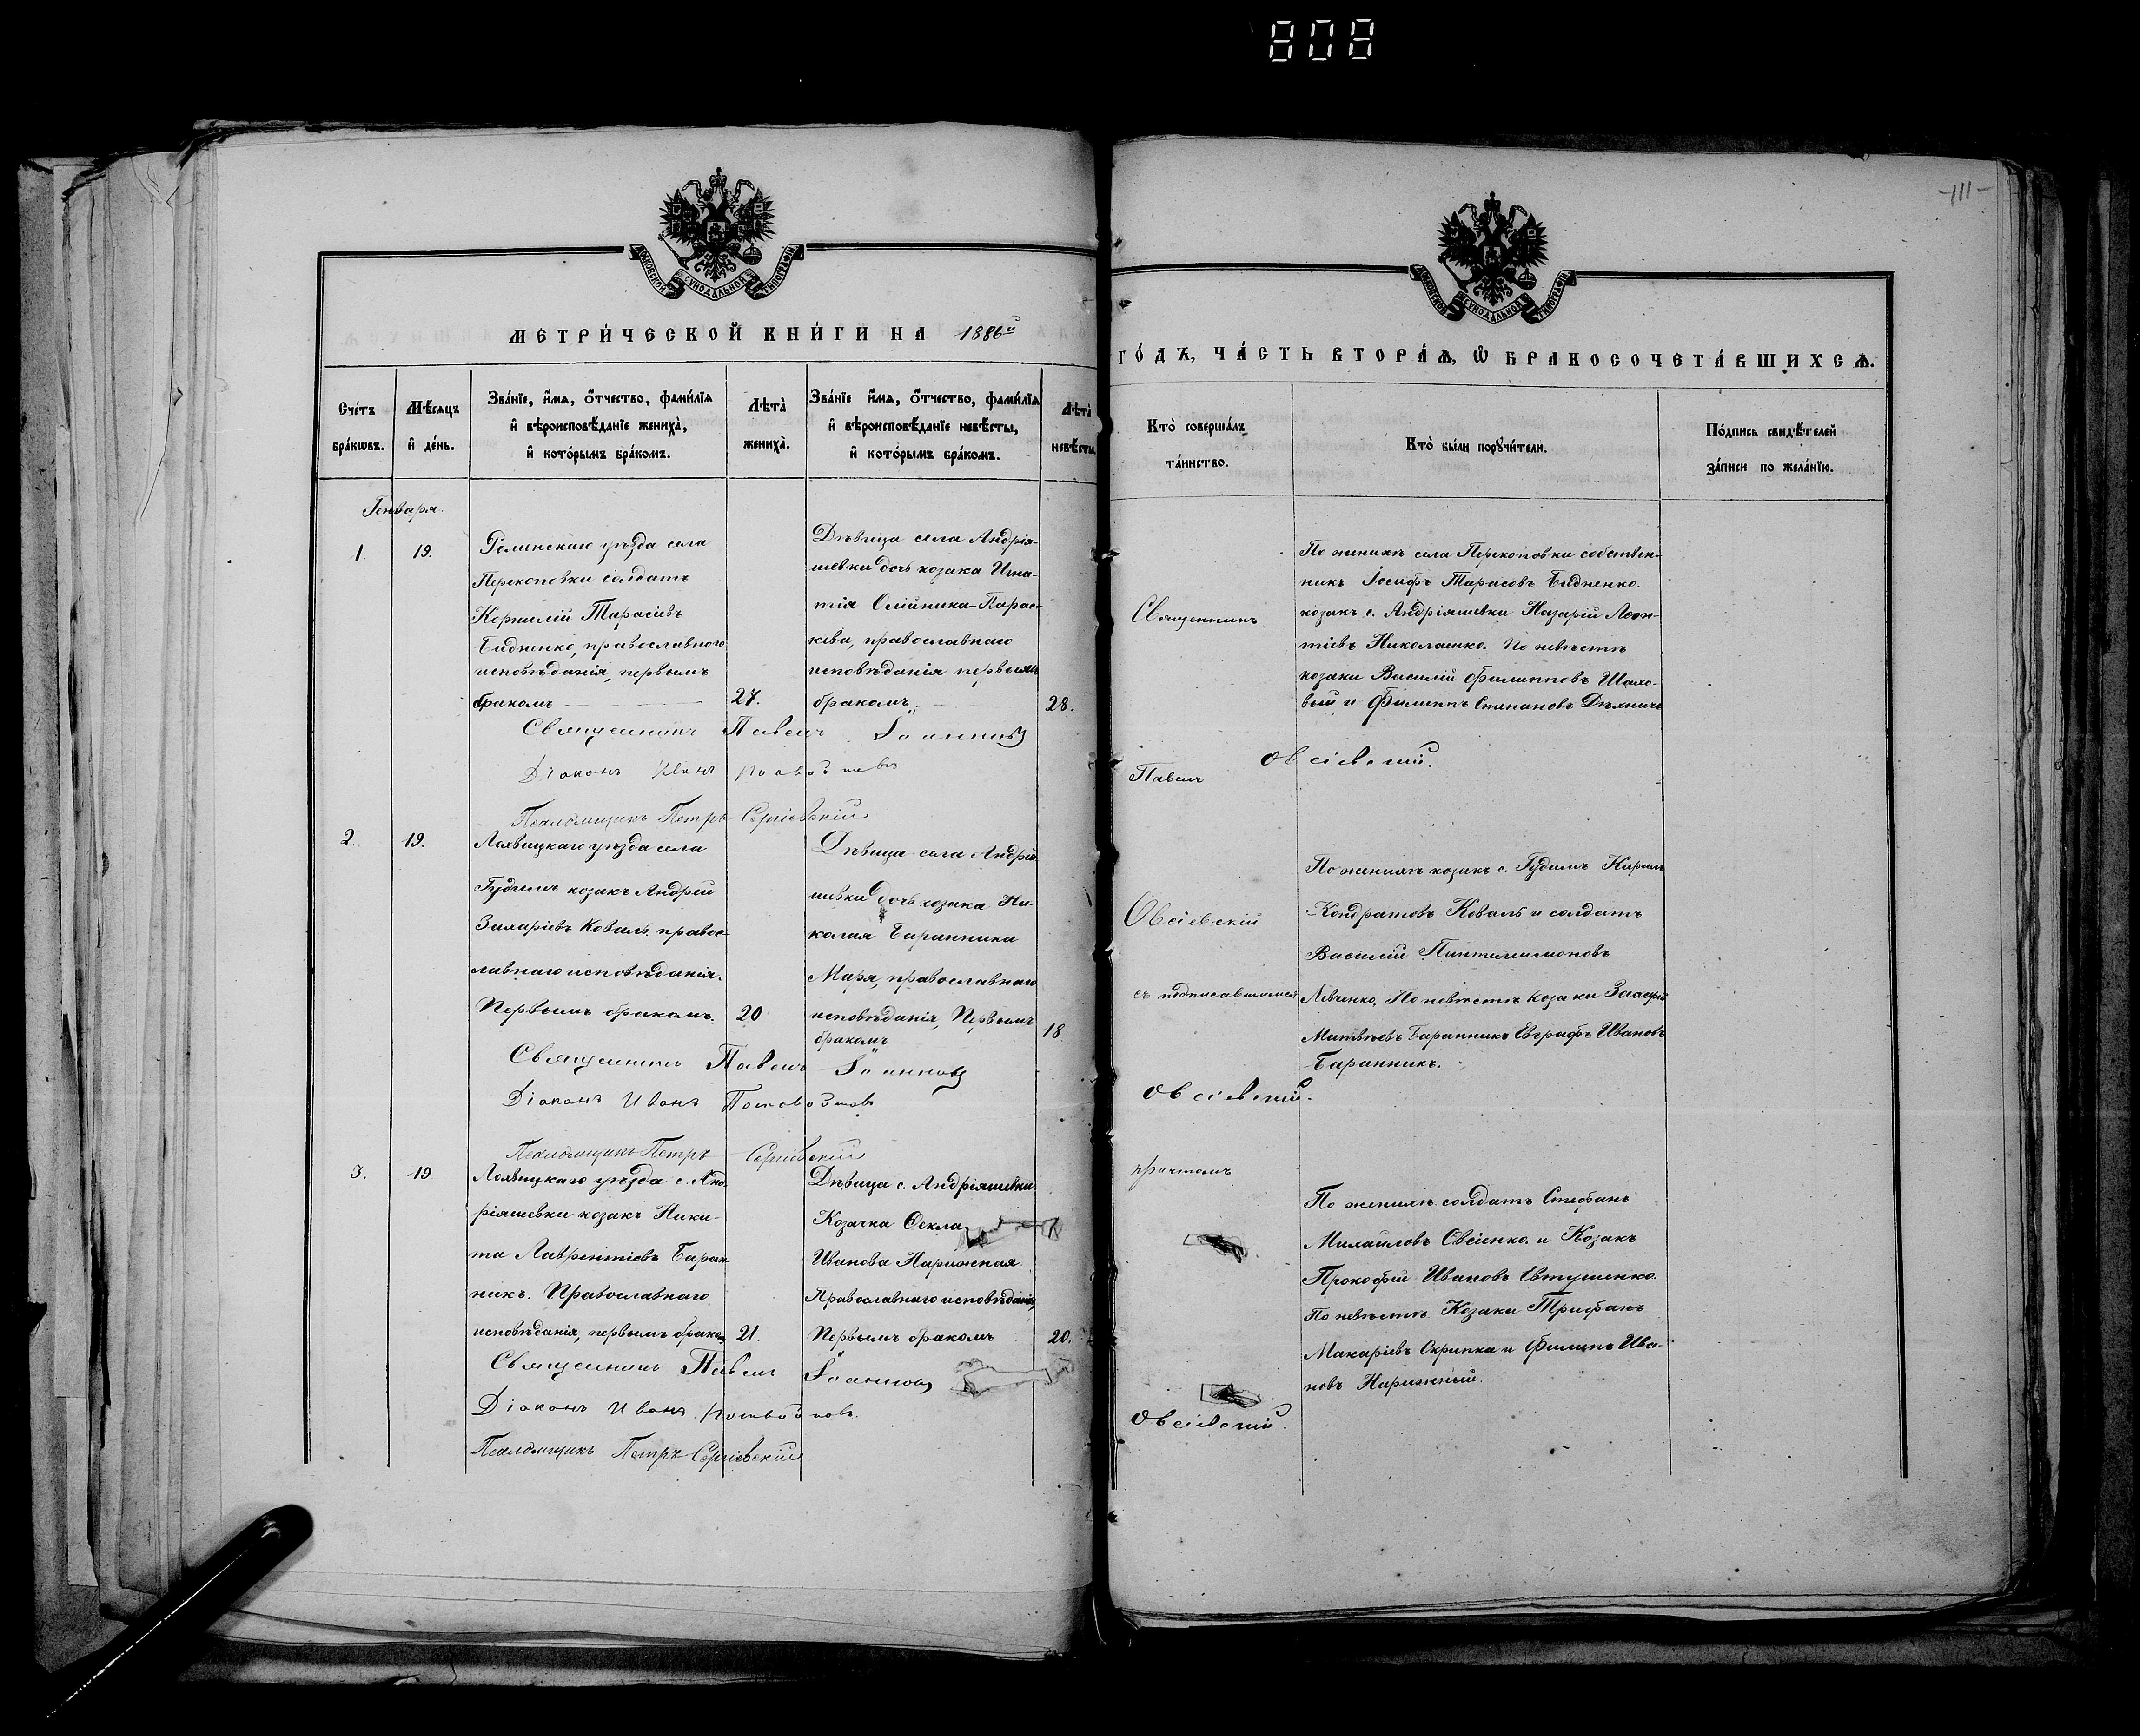 808
-111-
МОСКОВСКОЙ СѴНОДАЛЬНОЙ ТИПОГРАФІИ
МОСКОВСКОЙ СѴНОДАЛЬНОЙ ТИПОГРАФІИ
МЕТРИ́ЧЕСКОЙ КНИ́ГИ НА 1886й
ГО́ДЪ, ЧА́СТЬ ВТОРА́Ѧ, Ѽ БРАКОСОЧЕТА́ВШИХСѦ.
Сче́тъ бра́кѡвъ.
Мѣ́сѧцъ и҆ де́нь.
Зва́нїе, и҆́мѧ, ѻ҆́тчество, фамѝлїѧ
и҆ вѣроисповѣ́данїе жениха̀,
и҆ кото́рымъ бра́комъ.
Лѣта̀ жениха̀.
Зва́нїе и҆́мѧ, ѻ҆́тчество, фамѝлїѧ
и҆ вѣроисповѣ́данїе невѣ́сты,
и҆ кото́рымъ бра́комъ.
Лѣта̀ невѣ́сты.
Кто̀ соверша́лъ
та́инство.
Кто̀ бы́ли порꙋчи́тели.
По́дпись свидѣ́телей
за́писи по жела́нїю.
Генваря.
1.
19.
Роменскаго уѣзда села
Перекоповки солдатъ
Корнилій Тарасіевъ
Бидненко, православнаго
исповѣданія, первымъ
бракомъ
27.
Дѣвица села Андрія-
шевки дочь козака Игна-
тія Олійника Парас-
кева, православнаго
исповѣданія первымъ
бракомъ.
28.
Священникъ
По женихѣ села Перекоповки собствен-
никъ Іосифъ Тарасовъ Бидненко.
козакъ с. Андріяшевки Назарій Леон-
тіевъ Николашко. По невѣстѣ
козаки Василій Филипповъ
и Филиппъ Степановъ
Священникъ Павелъ Іоанновъ Овсіевскій.
Діаконъ Иванъ
Павелъ
Псаломщикъ Петръ Сергіевскій
2.
19.
Лохвицкаго уѣзда села
Гудимъ козакъ Андрей
Захаріевъ Коваль правос-
лавнаго исповѣданія.
Первымъ бракомъ.
20
Дѣвица села Андрія
шевки дочь козака Ни-
колая Баранника
Марѳа, православнаго
исповѣданія, Первымъ
бракомъ
18.
Овсіевскій
съ подписавшимся
По женихѣ козакъ с. Гудимъ Кирилъ
Кондратовъ Коваль и солдатъ
Василій Пантелимоновъ
Левченко. По невѣстѣ козаки
Матвѣевъ Баранникъ Евграфъ Ивановъ
Баранникъ.
Священникъ Павелъ Іоанновъ Овсіевскій.
Діаконъ Иванъ
Псаломщикъ Петръ Сергіевскій
причтомъ
3.
19
Лохвицкаго уѣзда с. Анд-
ріяшевки козакъ Ники-
та Лаврентіевъ Баран
никъ. Православнаго
исповѣданія, первымъ браком
21.
Дѣвица с. Андріяшевки
Козачка Ѳекла
Иванова Нарижная
Православнаго исповѣданія
Первымъ бракомъ
20.
По женихѣ солдатъ Стефанъ
Михайловъ Овсіенко. и Козакъ
Прокофій Ивановъ Евтушенко.
По невѣстѣ Козаки Трифанъ
Макаріевъ Скрипка и Филипъ Ива-
новъ Нарижный.
Священникъ Павелъ Іоанновъ Овсіевскій.
Діаконъ Иванъ
Псаломщикъ Петръ Сергіевскій